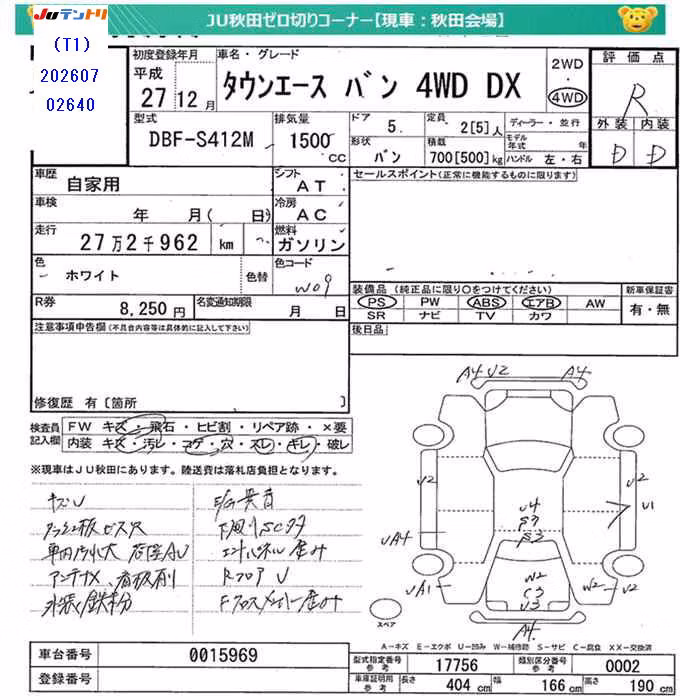 JUテントリ JU秋田ゼロ切りコーナー【現車：秋田会場】
(T1)
202607
02640
初度登録年月 車名・グレード
平成
27 12月 タウンエース バン 4WD DX
2WD
・
4WD
評価点
R
外装 内装
D D
型式 排気量 ドア 定員 ディーラー・並行
DBF-S412M 1500 CC 5. 2[5]人 モデル年式 年
形状 積載 ハンドル 左・右
バン 700[500]kg
車歴 シフト
自家用 AT
セールスポイント(正常に機能するものに限ります)
車検 冷房
年 月( 日) AC
走行 燃料
27万2千962 km ガソリン
色 色替 色コード
ホワイト W09
装備品 (純正品に限り〇をつけてください) 新車保証書
PS PW ABS エアB AW 有・無
SR ナビ TV カワ
R券 名変通知期限
8,250円 月 日
後日品
注意事項申告欄(不具合内容等は具体的に記入して下さい)
修復歴 有〔箇所 〕
検査員記入欄
FW キズ・飛石・ヒビ割・リペア跡・×要
内装 キズ・汚レ・コゲ・穴・スレ・キレ・破レ
※現車はJU秋田にあります。陸送費は落札店負担となります。
キズU
ダッシュ板ビス穴
アンテナX
E/G異音
RフロアU
A4 U2 A4
U2
UA4
UA1
U4
S3
S3
W2
C3
U3
A4
U2
U1
W2
U2
スペア
A－キズ E－エクボ U－凹み W－補修跡 S－サビ C－腐食 XX－交換済
車台番号 0015969
登録番号
型式指定番号参考 17756 類別区分番号参考 0002
車庫証明用参考 長さ 404 cm 幅 166 cm 高さ 190 cm